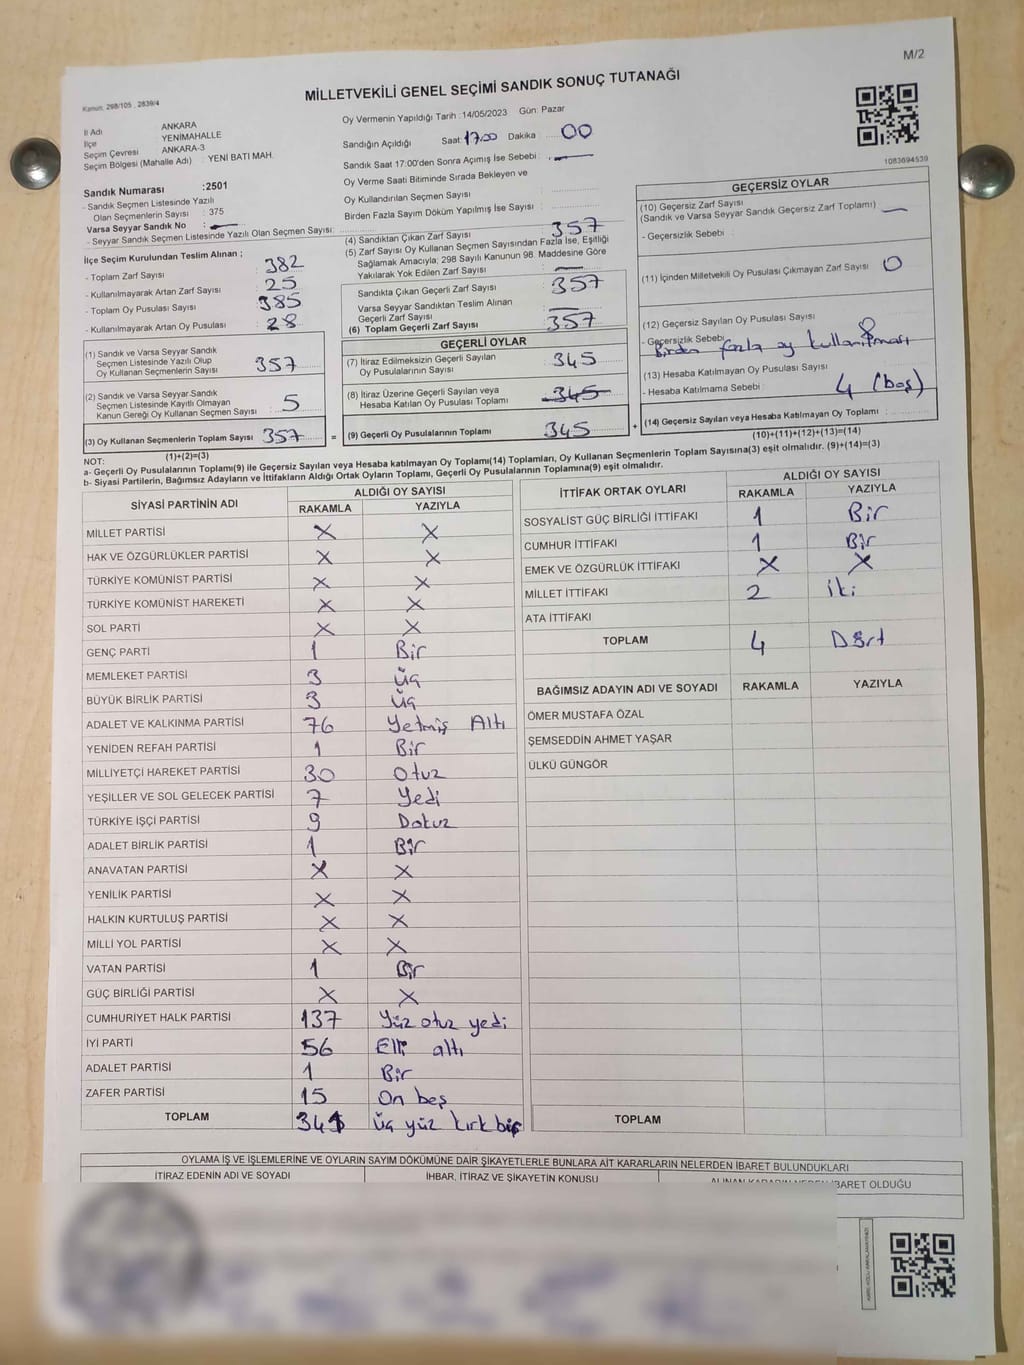 M/2
MİLLETVEKİLİ GENEL SEÇİMİ SANDIK SONUÇ TUTANAĞI
Kanun: 298/105 , 2839/4
İl Adı ANKARA
İlçe YENİMAHALLE
Seçim Çevresi ANKARA-3
Seçim Bölgesi (Mahalle Adı) : YENİ BATI MAH.
Sandık Numarası :2501
- Sandık Seçmen Listesinde Yazılı
Olan Seçmenlerin Sayısı : 375
Varsa Seyyar Sandık No : —
- Seyyar Sandık Seçmen Listesinde Yazılı Olan Seçmen Sayısı:
İlçe Seçim Kurulundan Teslim Alınan ;
- Toplam Zarf Sayısı : 382
- Kullanılmayarak Artan Zarf Sayısı : 25
- Toplam Oy Pusulası Sayısı : 385
- Kullanılmayarak Artan Oy Pusulası : 28
(1) Sandık ve Varsa Seyyar Sandık
Seçmen Listesinde Yazılı Olup
Oy Kullanan Seçmenlerin Sayısı : 357
(2) Sandık ve Varsa Seyyar Sandık
Seçmen Listesinde Kayıtlı Olmayan
Kanun Gereği Oy Kullanan Seçmen Sayısı : 5
(3) Oy Kullanan Seçmenlerin Toplam Sayısı : 357 =
(1)+(2)=(3)
Oy Vermenin Yapıldığı Tarih :14/05/2023 Gün: Pazar
Sandığın Açıldığı Saat: 17.00 Dakika : 00
Sandık Saat 17:00'den Sonra Açımış İse Sebebi : —
Oy Verme Saati Bitiminde Sırada Bekleyen ve
Oy Kullandırılan Seçmen Sayısı :
Birden Fazla Sayım Döküm Yapılmış İse Sayısı :
(4) Sandıktan Çıkan Zarf Sayısı : 357
(5) Zarf Sayısı Oy Kullanan Seçmen Sayısından Fazla İse, Eşitliği
Sağlamak Amacıyla; 298 Sayılı Kanunun 98. Maddesine Göre
Yakılarak Yok Edilen Zarf Sayısı : —
Sandıkta Çıkan Geçerli Zarf Sayısı : 357
Varsa Seyyar Sandıktan Teslim Alınan
Geçerli Zarf Sayısı : —
(6) Toplam Geçerli Zarf Sayısı : 357
GEÇERLİ OYLAR
(7) İtiraz Edilmeksizin Geçerli Sayılan
Oy Pusulalarının Sayısı : 345
(8) İtiraz Üzerine Geçerli Sayılan veya
Hesaba Katılan Oy Pusulası Toplamı : 345
(9) Geçerli Oy Pusulalarının Toplamı : 345 +
1083694539
GEÇERSİZ OYLAR
(10) Geçersiz Zarf Sayısı :
(Sandık ve Varsa Seyyar Sandık Geçersiz Zarf Toplamı) —
- Geçersizlik Sebebi :
(11) İçinden Milletvekili Oy Pusulası Çıkmayan Zarf Sayısı : 0
(12) Geçersiz Sayılan Oy Pusulası Sayısı : 8
- Geçersizlik Sebebi : Birden fazla oy kullanılması
(13) Hesaba Katılmayan Oy Pusulası Sayısı :
- Hesaba Katılmama Sebebi : 4 (boş)
(14) Geçersiz Sayılan veya Hesaba Katılmayan Oy Toplamı :
(10)+(11)+(12)+(13)=(14)
NOT:
a- Geçerli Oy Pusulalarının Toplamı(9) ile Geçersiz Sayılan veya Hesaba katılmayan Oy Toplamı(14) Toplamları, Oy Kullanan Seçmenlerin Toplam Sayısına(3) eşit olmalıdır. (9)+(14)=(3)
b- Siyasi Partilerin, Bağımsız Adayların ve İttifakların Aldığı Ortak Oyların Toplamı, Geçerli Oy Pusulalarının Toplamına(9) eşit olmalıdır.
SİYASİ PARTİNİN ADI ALDIĞI OY SAYISI
RAKAMLA YAZIYLA
MİLLET PARTİSİ X X
HAK VE ÖZGÜRLÜKLER PARTİSİ X X
TÜRKİYE KOMÜNİST PARTİSİ X X
TÜRKİYE KOMÜNİST HAREKETİ X X
SOL PARTİ X X
GENÇ PARTİ 1 Bir
MEMLEKET PARTİSİ 3 Üç
BÜYÜK BİRLİK PARTİSİ 3 Üç
ADALET VE KALKINMA PARTİSİ 76 Yetmiş Altı
YENİDEN REFAH PARTİSİ 1 Bir
MİLLİYETÇİ HAREKET PARTİSİ 30 Otuz
YEŞİLLER VE SOL GELECEK PARTİSİ 7 Yedi
TÜRKİYE İŞÇİ PARTİSİ 9 Dokuz
ADALET BİRLİK PARTİSİ 1 Bir
ANAVATAN PARTİSİ X X
YENİLİK PARTİSİ X X
HALKIN KURTULUŞ PARTİSİ X X
MİLLİ YOL PARTİSİ X X
VATAN PARTİSİ 1 Bir
GÜÇ BİRLİĞİ PARTİSİ X X
CUMHURİYET HALK PARTİSİ 137 Yüz otuz yedi
İYİ PARTİ 56 Elli altı
ADALET PARTİSİ 1 Bir
ZAFER PARTİSİ 15 On beş
TOPLAM 341 Üç yüz kırk bir
İTTİFAK ORTAK OYLARI ALDIĞI OY SAYISI
RAKAMLA YAZIYLA
SOSYALİST GÜÇ BİRLİĞİ İTTİFAKI 1 Bir
CUMHUR İTTİFAKI 1 Bir
EMEK VE ÖZGÜRLÜK İTTİFAKI X X
MİLLET İTTİFAKI 2 İki
ATA İTTİFAKI
TOPLAM 4 Dört
BAĞIMSIZ ADAYIN ADI VE SOYADI RAKAMLA YAZIYLA
ÖMER MUSTAFA ÖZAL
ŞEMSEDDİN AHMET YAŞAR
ÜLKÜ GÜNGÖR
TOPLAM
OYLAMA İŞ VE İŞLEMLERİNE VE OYLARIN SAYIM DÖKÜMÜNE DAİR ŞİKAYETLERLE BUNLARA AİT KARARLARIN NELERDEN İBARET BULUNDUKLARI
İTİRAZ EDENİN ADI VE SOYADI İHBAR, İTİRAZ VE ŞİKAYETİN KONUSU ALINAN KARARIN NEDEN İBARET OLDUĞU